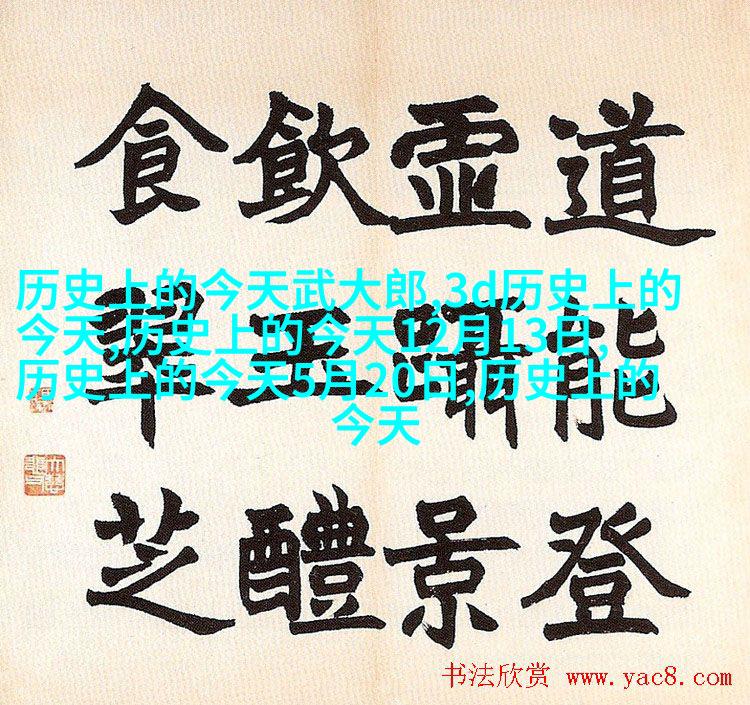 道能登
虛躡景
飲玉醴
食翠芝
历史上的今天武大郎,3d历史上的
今天,历史上的今天12月13日,
历史上的今天5月20日,历史上的
今天
书法欣赏 www.yac8.com